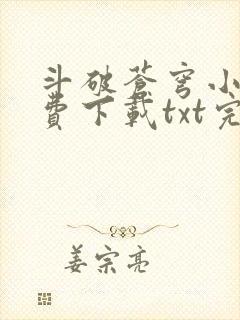 斗破苍穹小
费下载txt完
姜宗亮